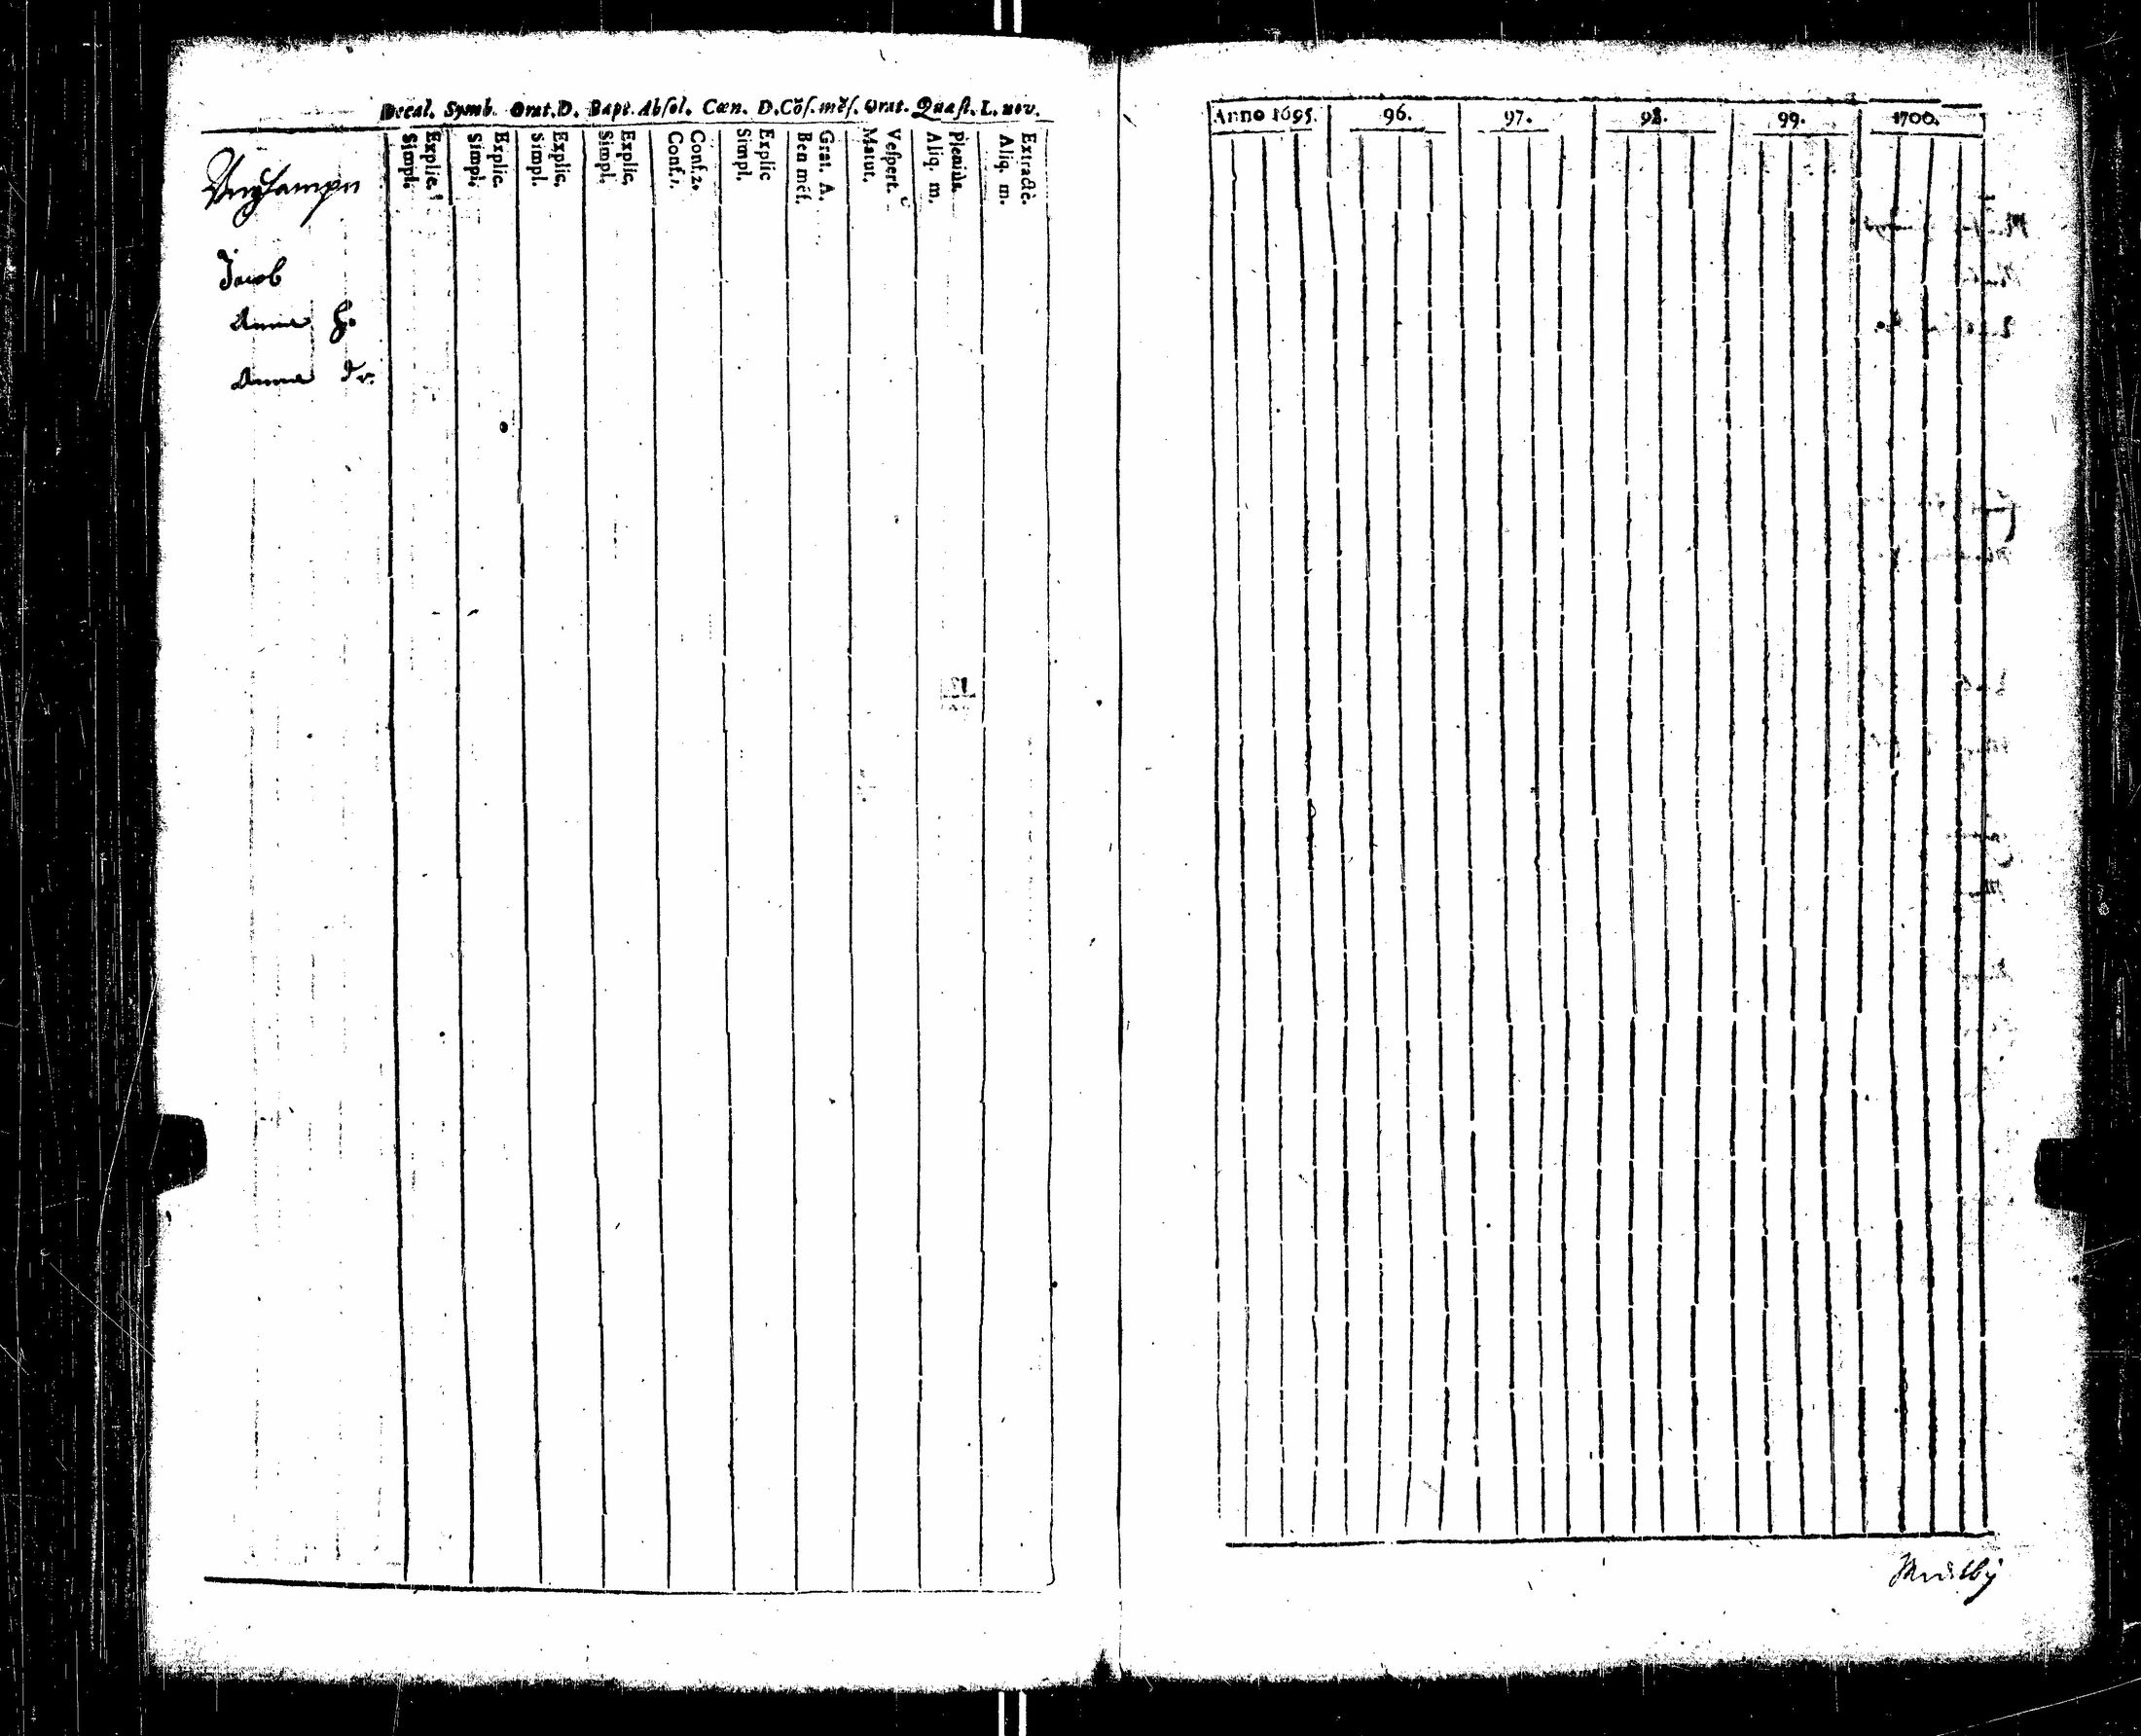 Decal. Symb. Orat. D. Bapt. Absol. Cœn. D. Cõs. mẽs. Orat. Quæst. L. nov.
Simpl. Explic. Simpl. Explic. Simpl. Explic. Simpl. Explic. Conf. 1. Conf. 2. Simpl. Explic Ben mẽs. Grat. A. Matut. Vespert. Aliq. m. Plenius. Aliq. m. Extractè.
Jacob
Anna h.
Anna dr.
Anno 1695. 96. 97. 98. 99. 1700.